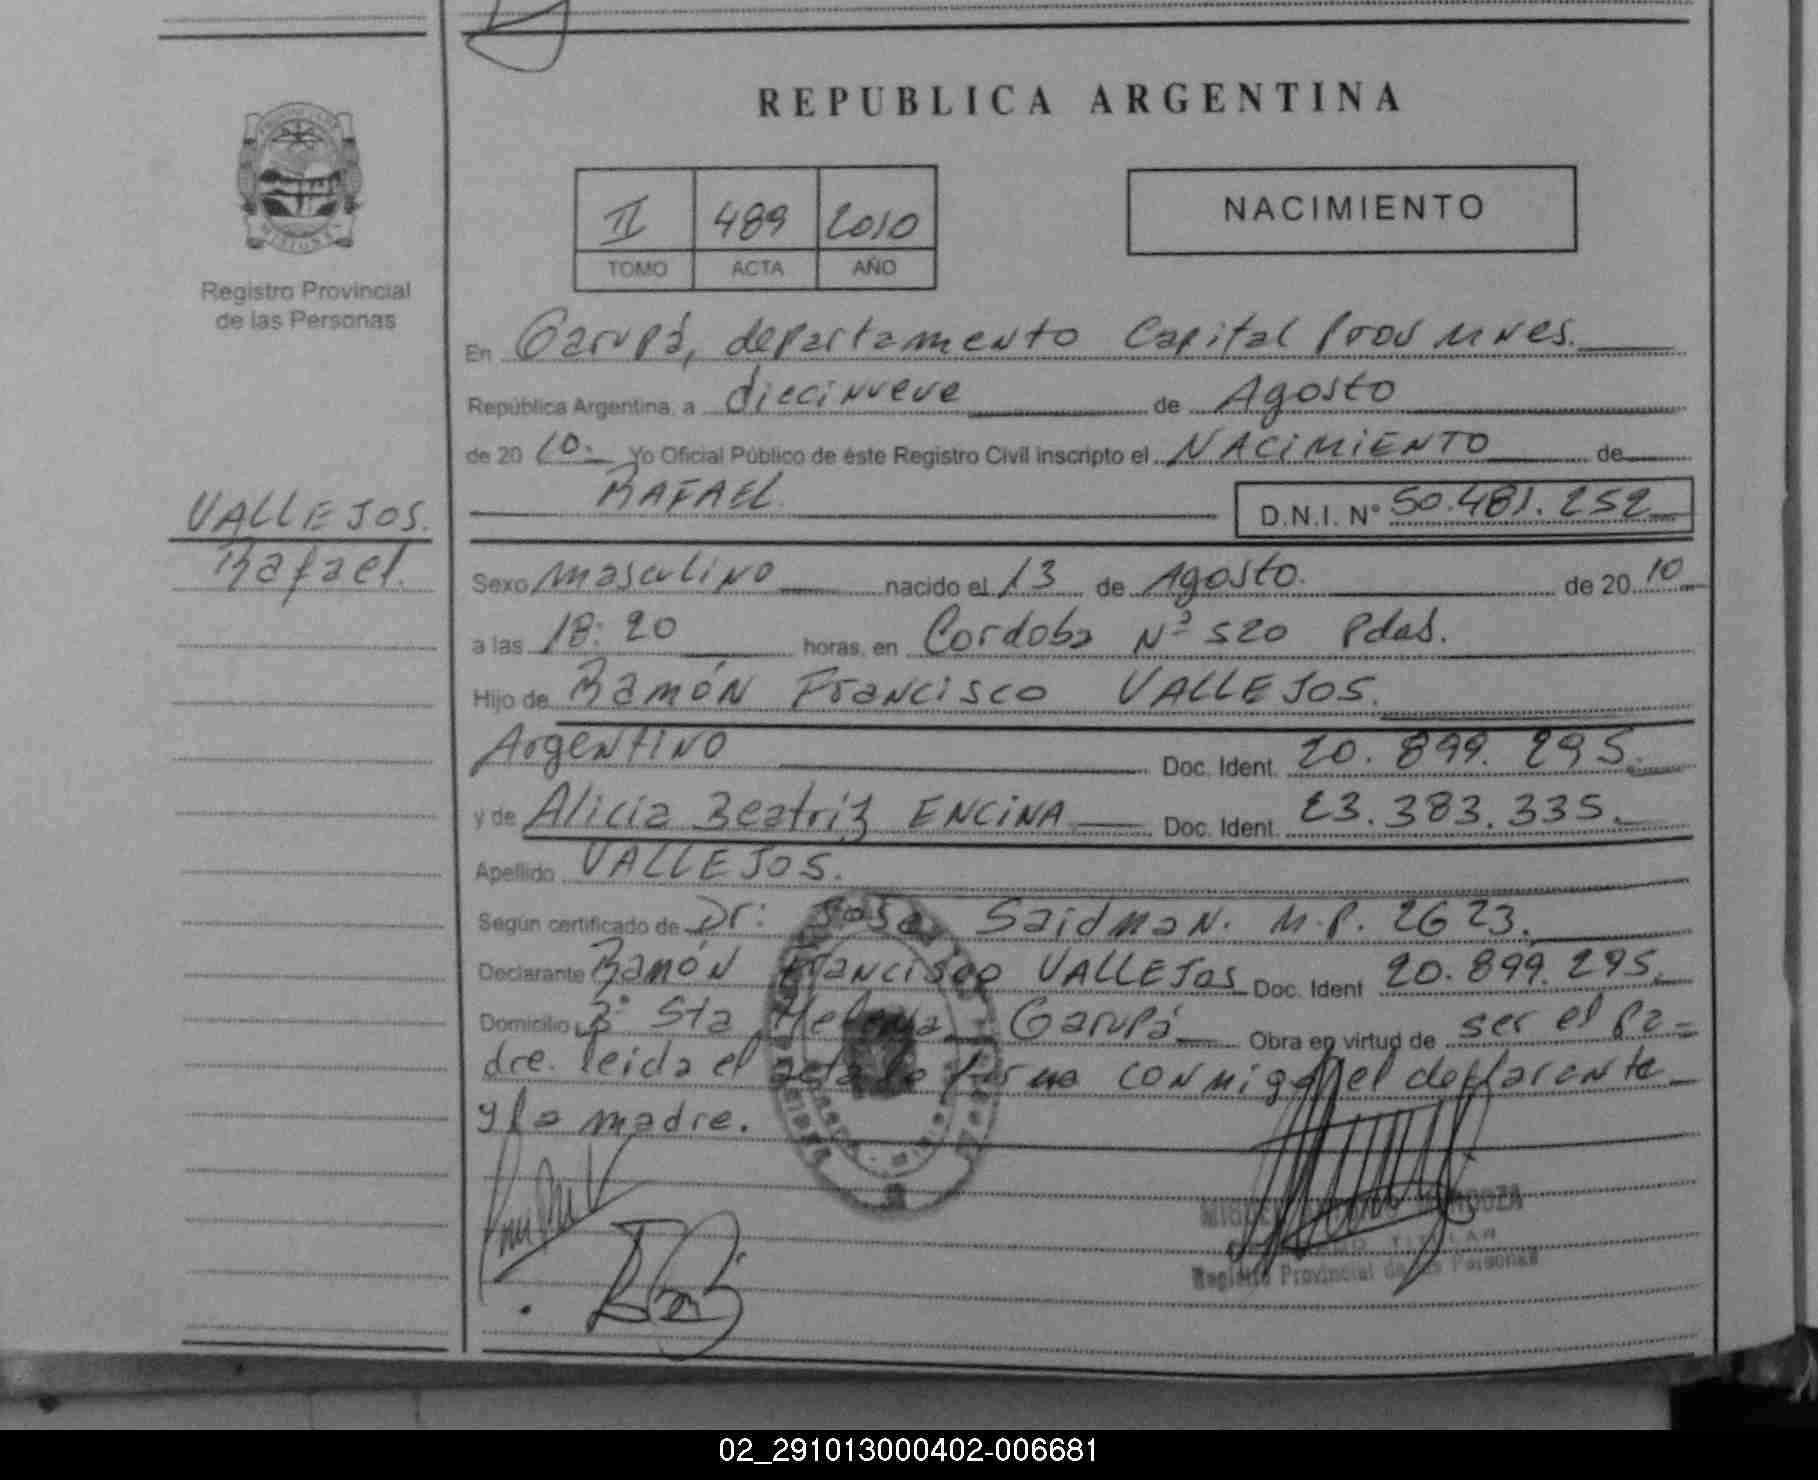 REPUBLICA ARGENTINA
II 489 2010
TOMO ACTA AÑO
NACIMIENTO
MISIONES
Registro Provincial
de las Personas
VALLEJOS.
Rafael.
En Garupá, departamento Capital Prov Mnes.
República Argentina, a diecinueve de Agosto
de 20 10. Yo Oficial Público de éste Registro Civil inscripto el NACIMIENTO de
RAFAEL. D.N.I. N° 50.481.252
Sexo masculino nacido el 13 de Agosto. de 20 10
a las 18:20 horas, en Cordoba Nº 520 Pdas.
Hijo de Ramón Francisco VALLEJOS.
Argentino Doc. Ident. 20.899.295.
y de Alicia Beatriz ENCINA Doc. Ident. 23.383.335.
Apellido VALLEJOS.
Según certificado de Dr: José Saidman. M.P. 2623.
Declarante Ramón Francisco VALLEJOS Doc. Ident 20.899.295.
Domicilio Bº Sta Helena Garupá Obra en virtud de ser el pa-
dre. leida el acta la firma conmigo el declarante
y la madre.
MENDOZA
TITULAR
Registro Provincial de las Personas
02_291013000402-006681